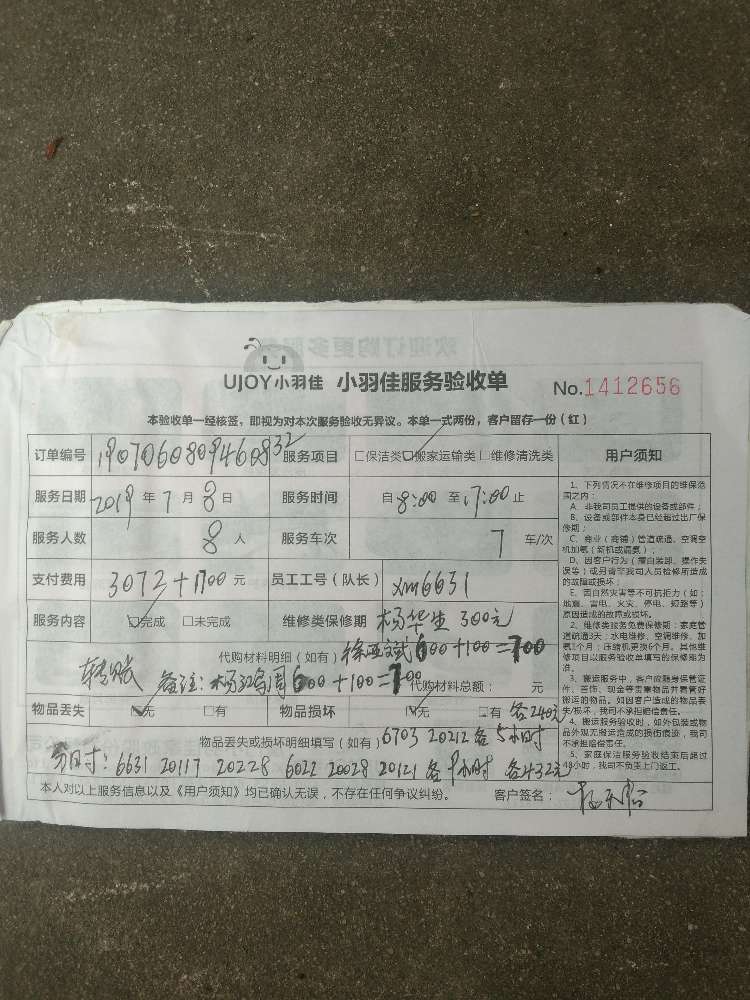 UJOY小羽佳 小羽佳服务验收单 No.1412656
本验收单一经核签，即视为对本次服务验收无异议。本单一式两份，客户留存一份（红）
订单编号 1907060809460832 服务项目 □保洁类 □搬家运输类 □维修清洗类
服务日期 2019年7月8日 服务时间 自8:00至17:00止
服务人数 8人 服务车次 7车/次
支付费用 3072+1700元 员工工号（队长） xm6631
服务内容 ☑完成 □未完成 维修类保修期 杨华生 300元
代购材料明细（如有） 600+100=700
转账 备注：杨 600+100=700 代购材料总额： 元
物品丢失 ☑无 □有 物品损坏 ☑无 □有 各240元
物品丢失或损坏明细填写（如有） 6703 20212 各5小时
6631 20117 20228 6022 20028 20121 各9小时 各432元
本人对以上服务信息以及《用户须知》均已确认无误，不存在任何争议纠纷。 客户签名：
用户须知
1、下列情况不在维修项目的维保范
围之内：
A、非我司员工提供的设备或部件；
B、设备或部件本身已经超过出厂保
修期；
C、商业（商铺）管道疏通、空调空
机加氨（新机或漏氨）；
D、因客户行为（擅自装卸、操作失
误等）或另请非我司人员检修所造成
的故障或损坏；
E、因自然灾害等不可抗拒力（如：
地震、雷电、火灾、停电、短路等）
原因造成的故障或损坏。
2、维修类服务免费保修期：家庭管
道疏通3天；水电维修、空调维修、加
氨1个月；压缩机更换6个月。其他维
修项目以服务验收单填写的保修期为
准。
3、搬运服务中，客户应随身保管证
件、首饰、现金等贵重物品并看管好
搬运的物品。如因客户造成的物品丢
失/损坏，我司不承担赔偿责任。
4、搬运服务验收时，如外包装或物
品外观无搬运造成的损伤痕迹，我司
不承担赔偿责任。
5、家庭保洁服务验收结束后超过
48小时，我司不负责上门返工。